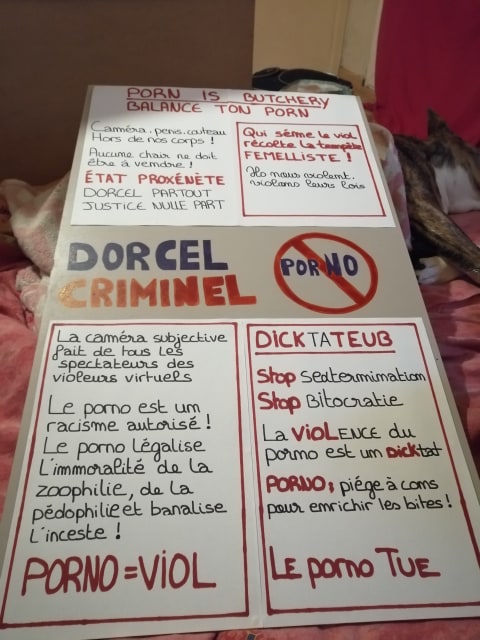 PORN IS BUTCHERY
BALANCE TON PORN
Caméra, penis, couteau
Hors de nos corps !
Aucune chair ne doit
être à vendre !
ÉTAT PROXÉNÈTE
DORCEL PARTOUT
JUSTICE NULLE PART
Qui sème le viol
récolte la tempête
FEMELLISTE !
Ils nous violent,
violons leurs lois
DORCEL
CRIMINEL
PORNO
La caméra subjective
fait de tous les
spectateurs des
violeurs virtuels
Le porno est un
racisme autorisé !
Le porno légalise
l'immoralité de la
zoophilie, de la
pédophilie et banalise
l'inceste !
PORNO = VIOL
DICKTATEUB
Stop Sextermination
Stop Bitocratie
La VIOLENCE du
porno est un DICKtat
PORNO, piége à cons
pour enrichir les bites !
Le porno TUE